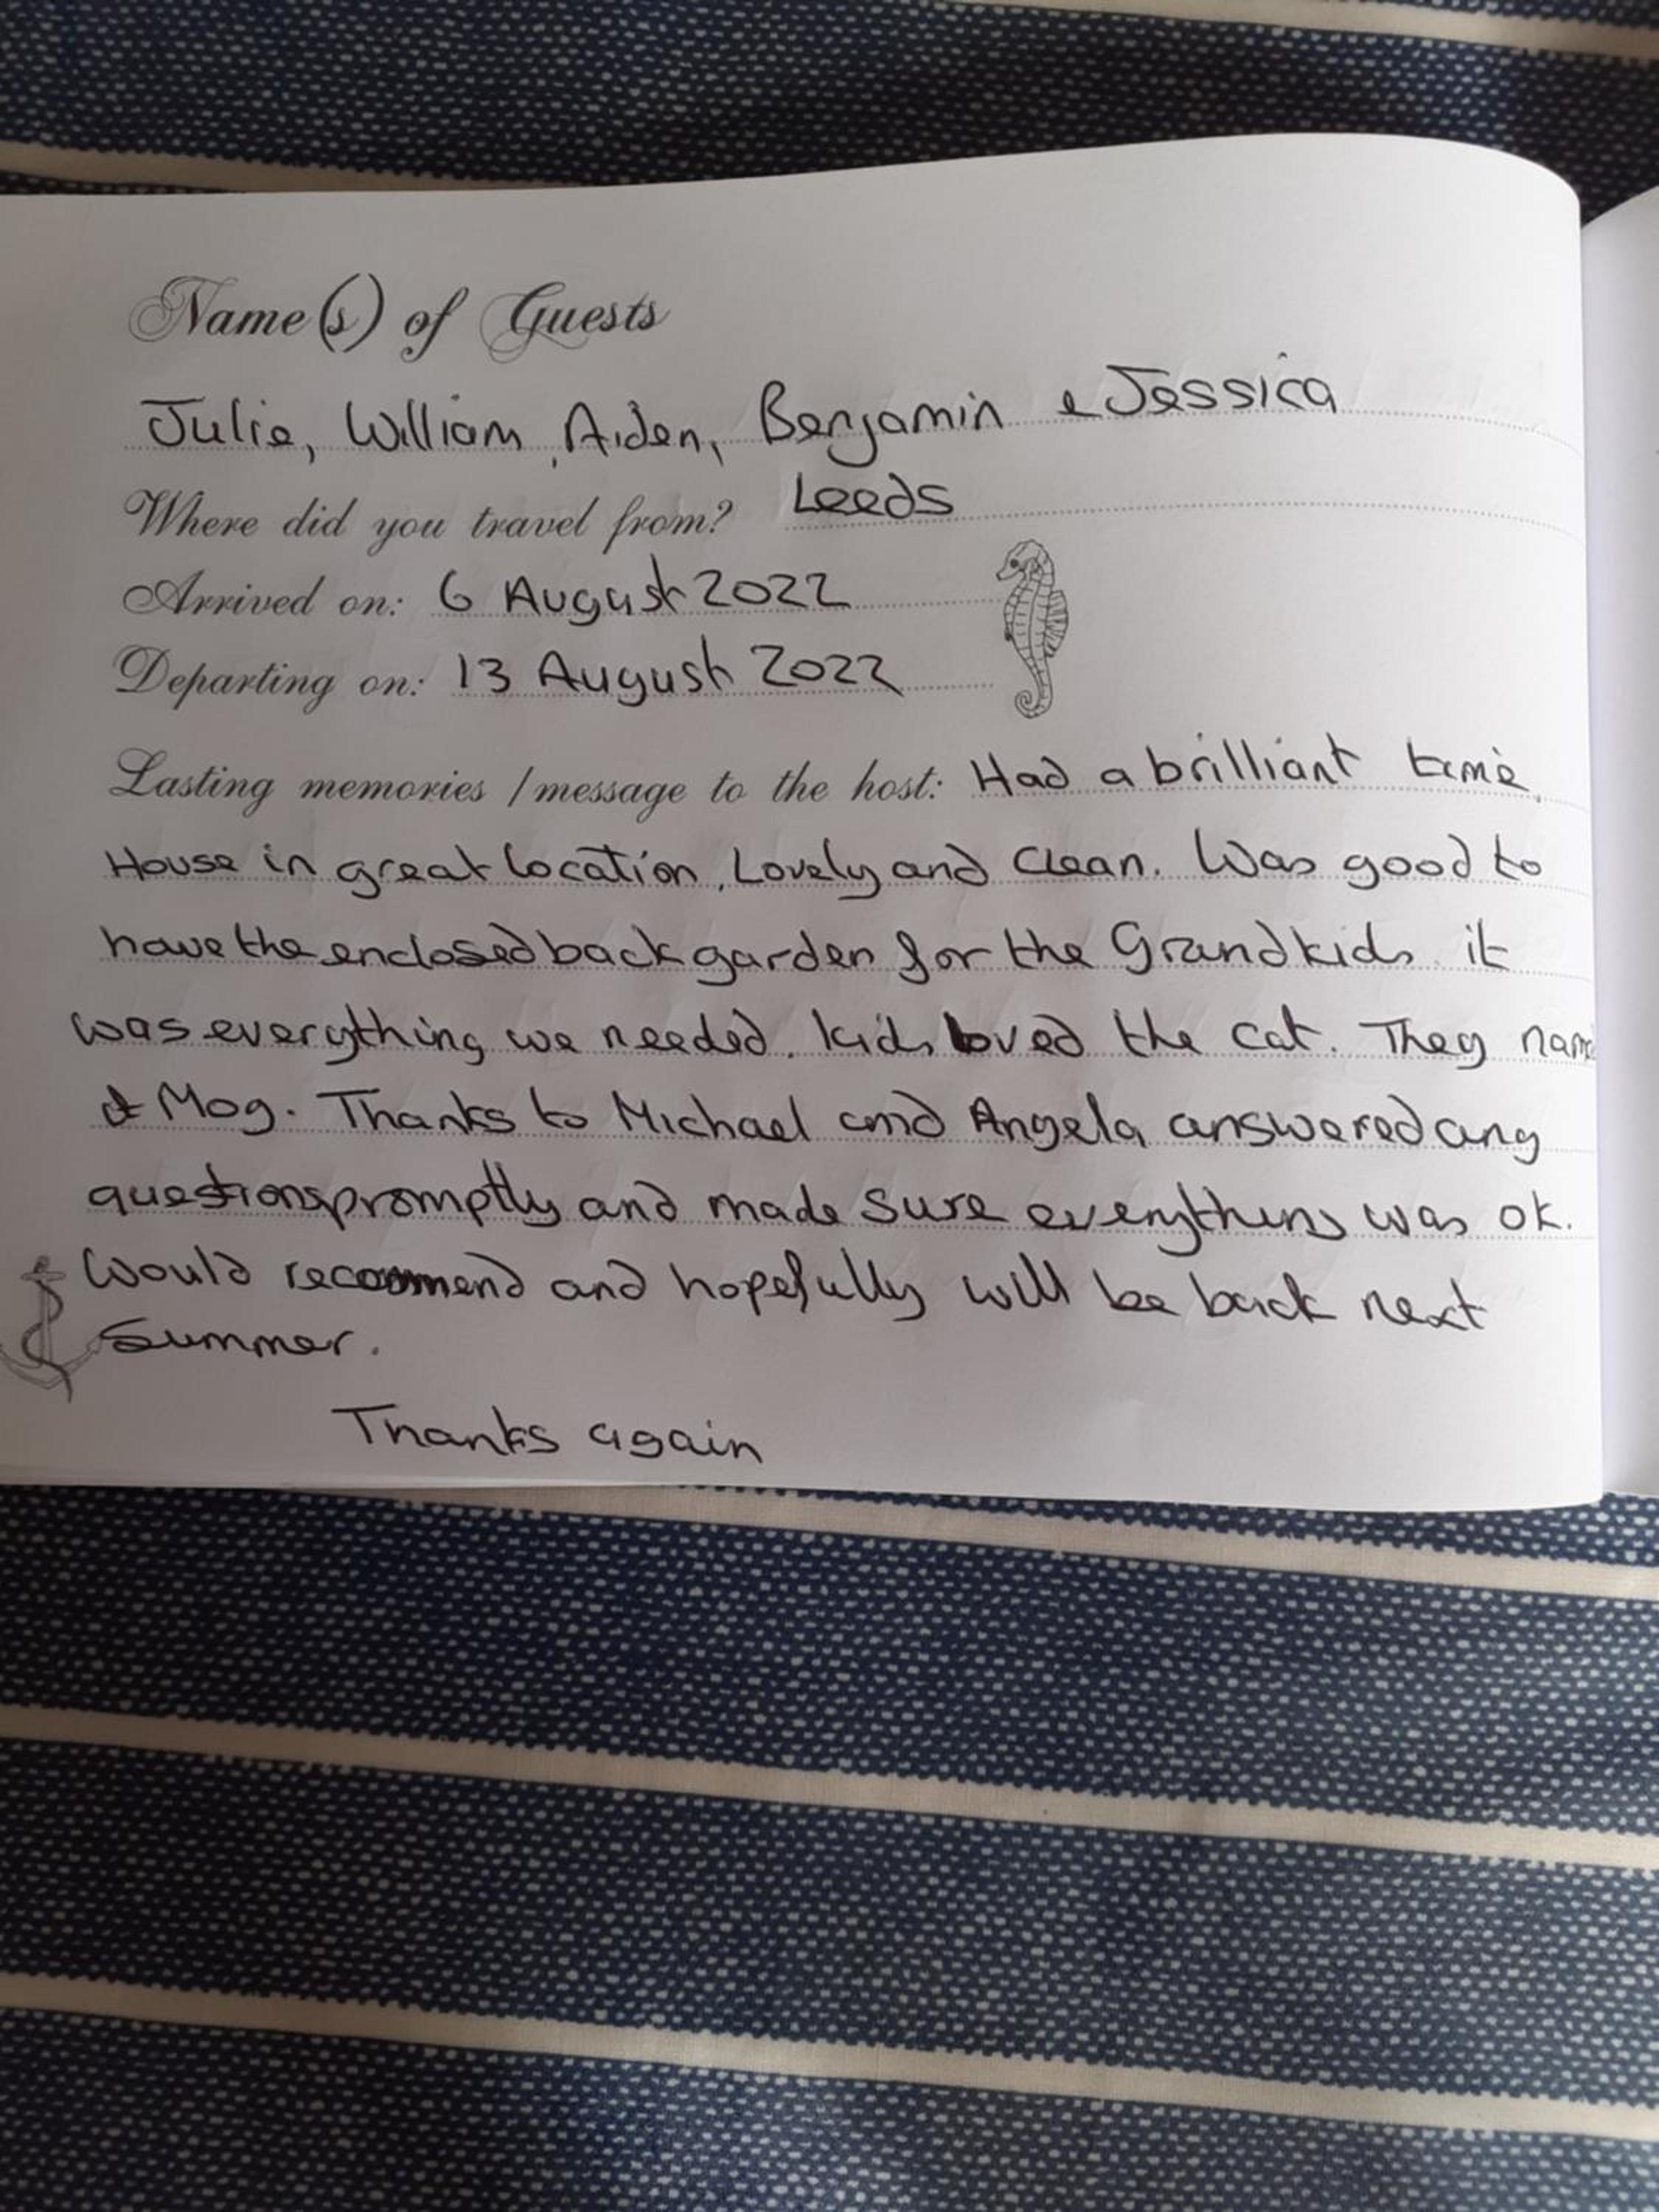 Name(s) of Guests
Julie, William, Aiden, Benjamin & Jessica
Where did you travel from? Leeds
Arrived on: 6 August 2022
Departing on: 13 August 2022
Lasting memories / message to the host: Had a brilliant time.
House in great location. Lovely and clean. Was good to
have the enclosed back garden for the Grandkids it
was everything we needed. Kids loved the cat. They
it Mog. Thanks to Michael and Angela answered any
questions promptly and made sure everything was ok.
Would recommend and hopefully will be back next
Summer.
Thanks again